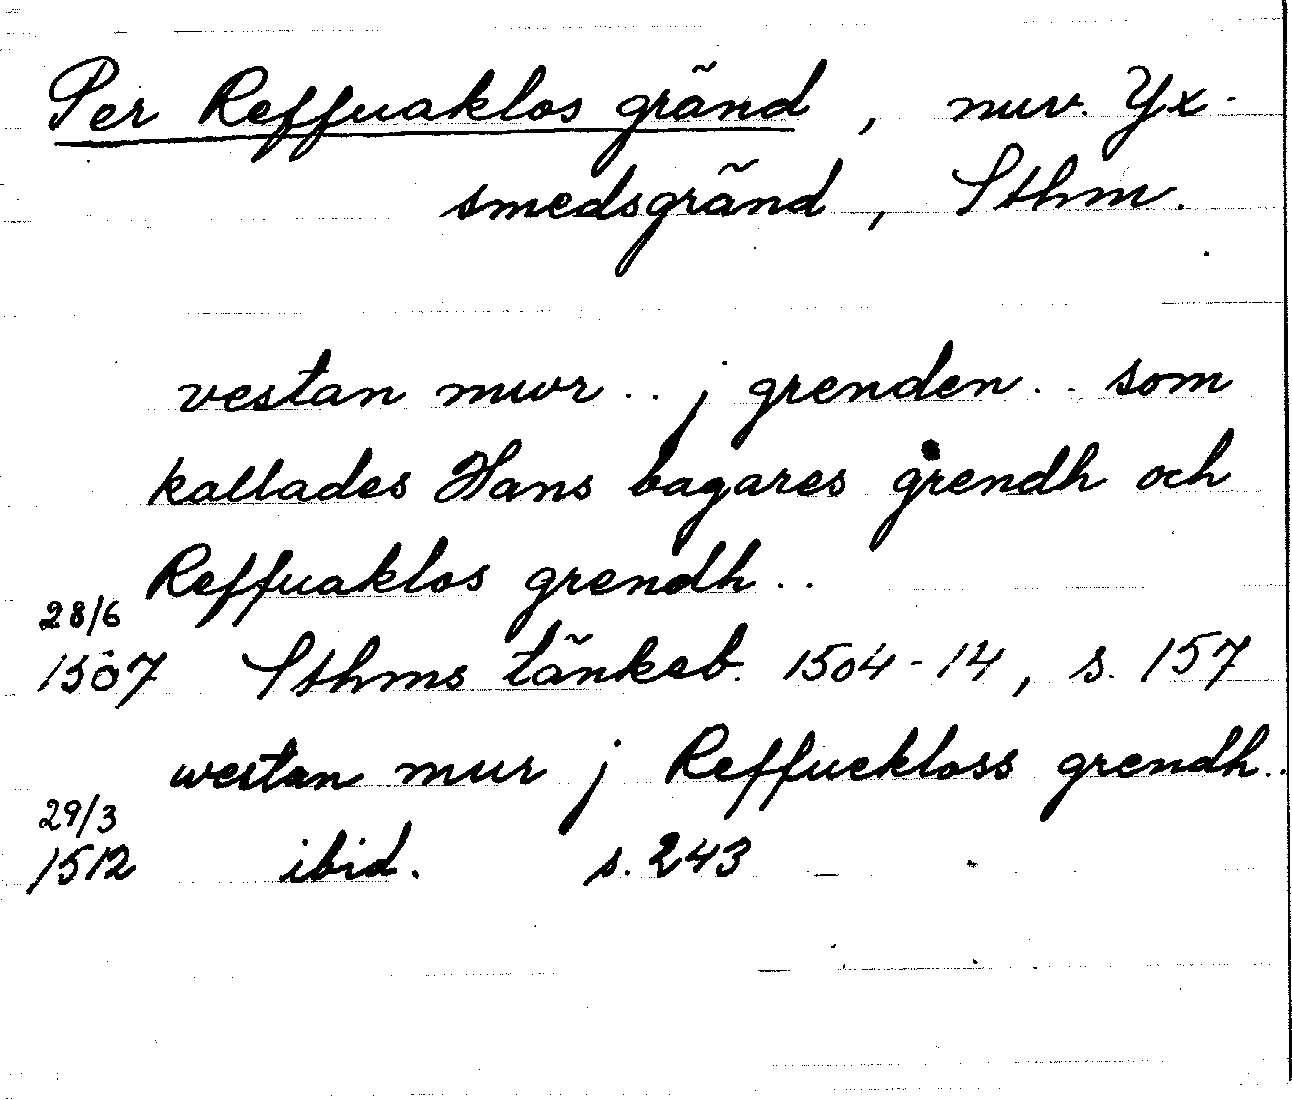 Per Reffuaklos gränd, nuv. Yx-
smedsgränd, Sthm.
vestan mwr .. j grenden .. som
kallades Hans bagares grendh och
Reffuaklos grendh ..
28/6
1507 Sthms tänkeb. 1504-14, s. 157
westan mur j Reffuekloss grendh..
29/3
1512 ibid. s. 243